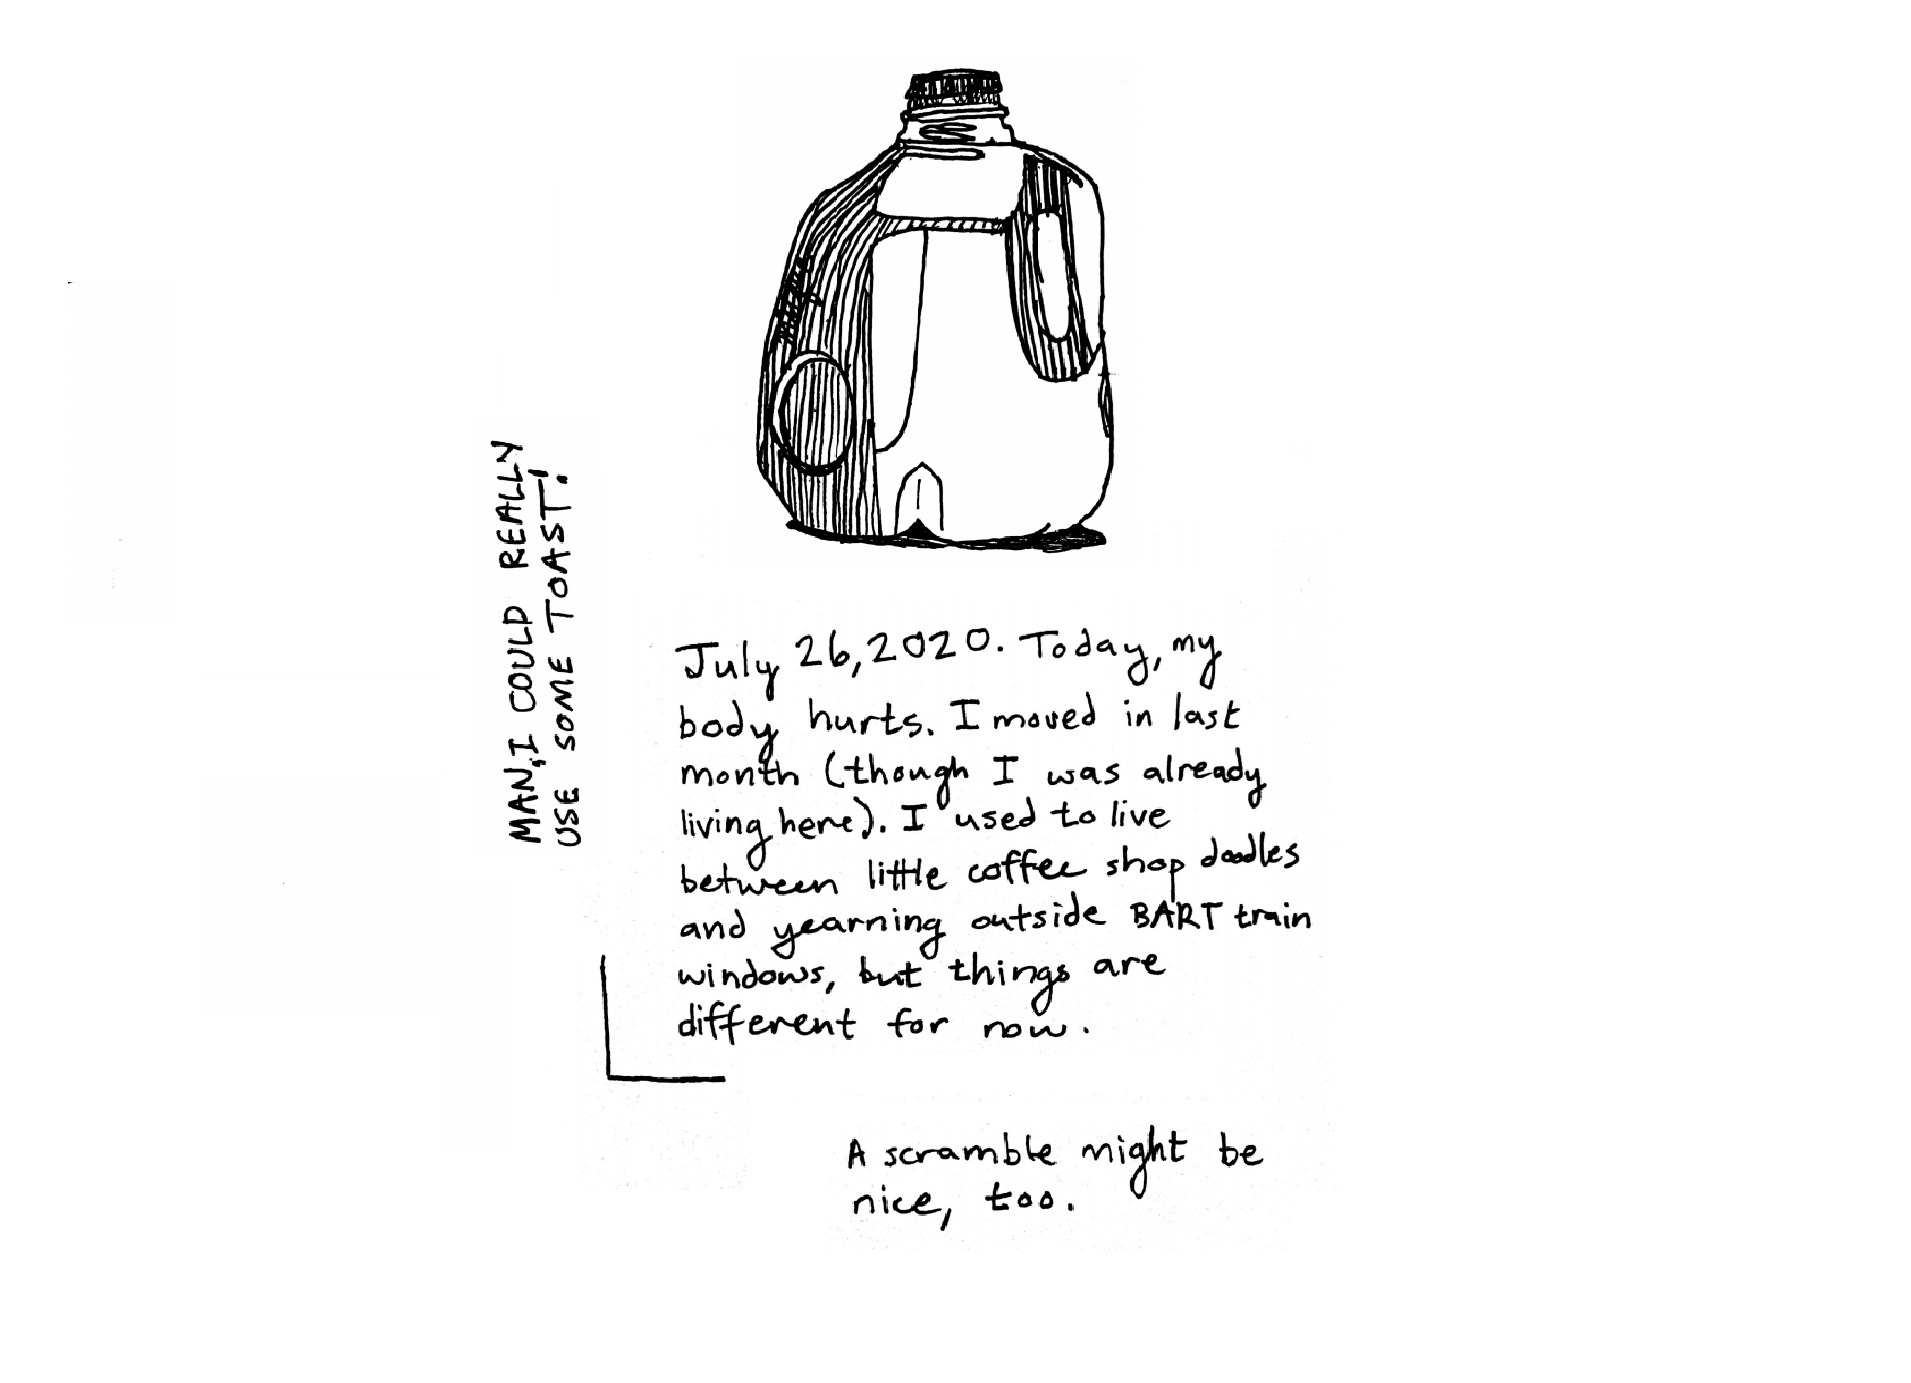 MAN, I COULD REALLY
USE SOME TOAST!
July 26, 2020. Today, my
body hurts. I moved in last
month (though I was already
living here). I used to live
between little coffee shop doodles
and yearning outside BART train
windows, but things are
different for now.
A scramble might be
nice, too.